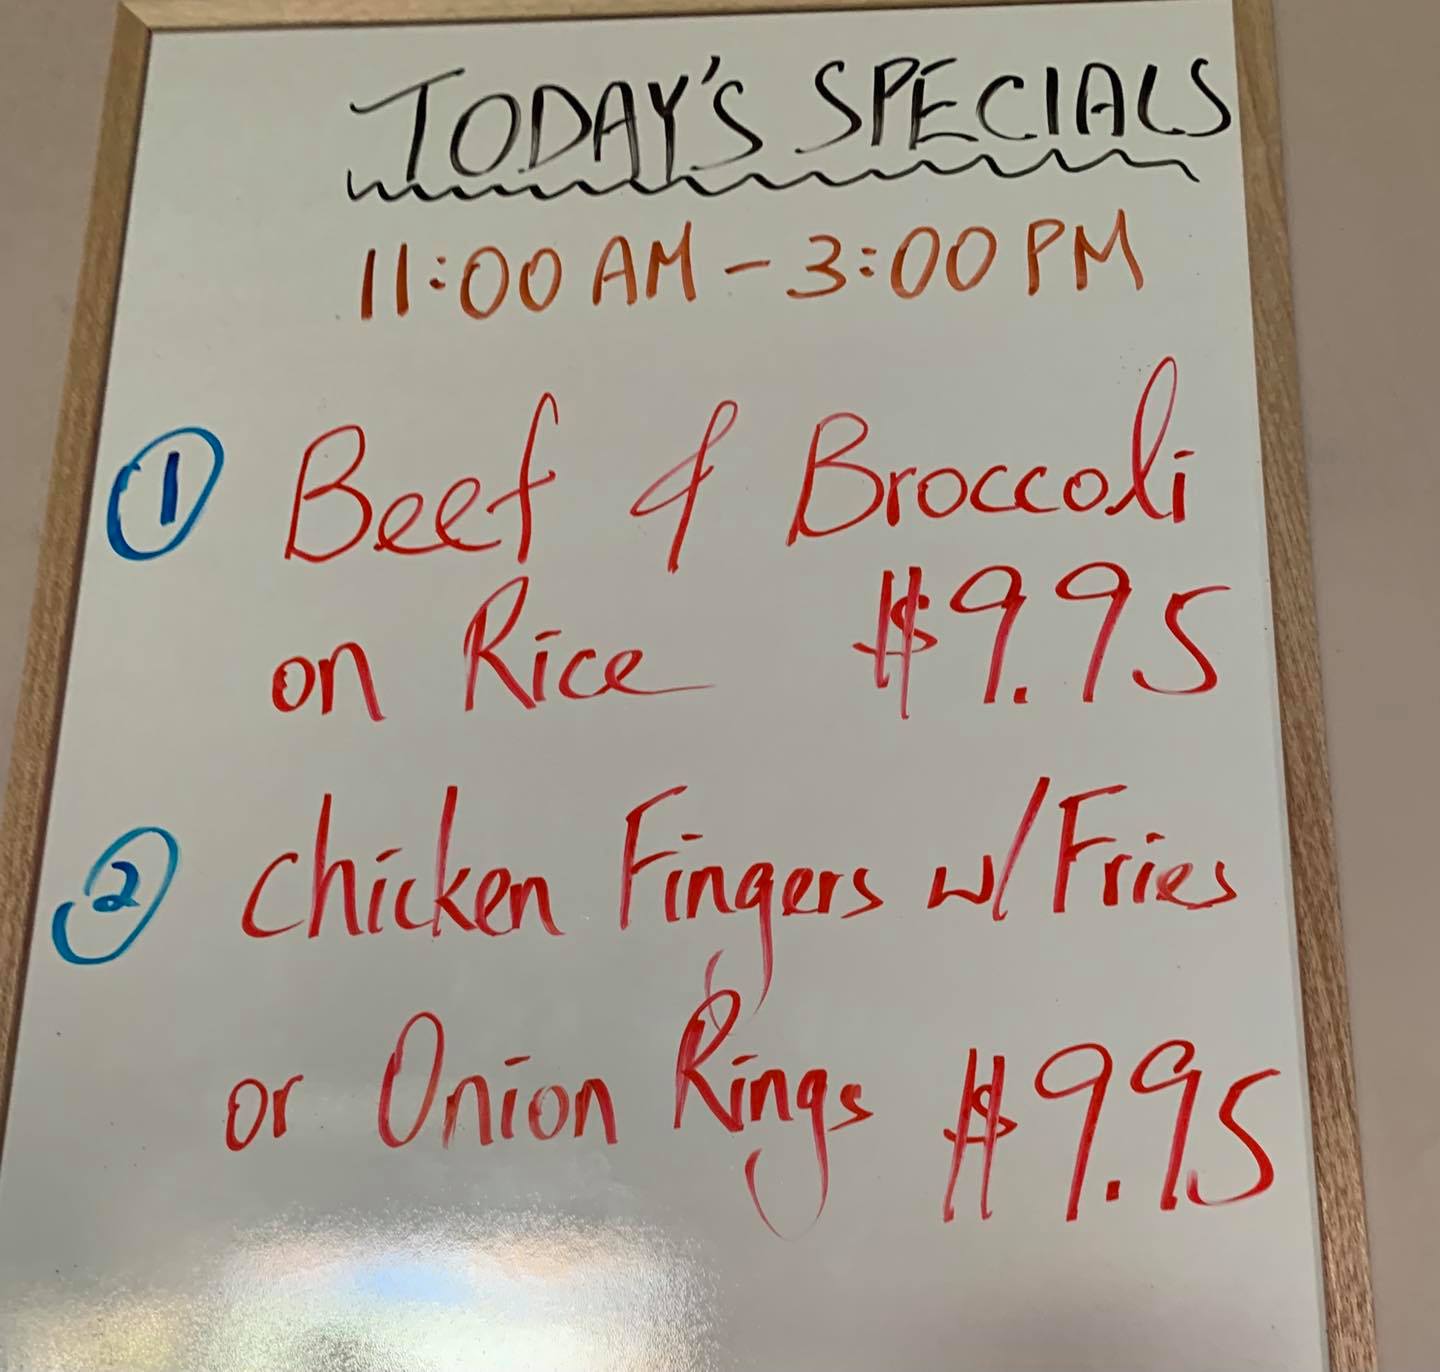 TODAY'S SPECIALS
11:00 AM - 3:00 PM
1 Beef & Broccoli
on Rice $9.95
2 Chicken Fingers w/Fries
or Onion Rings $9.95